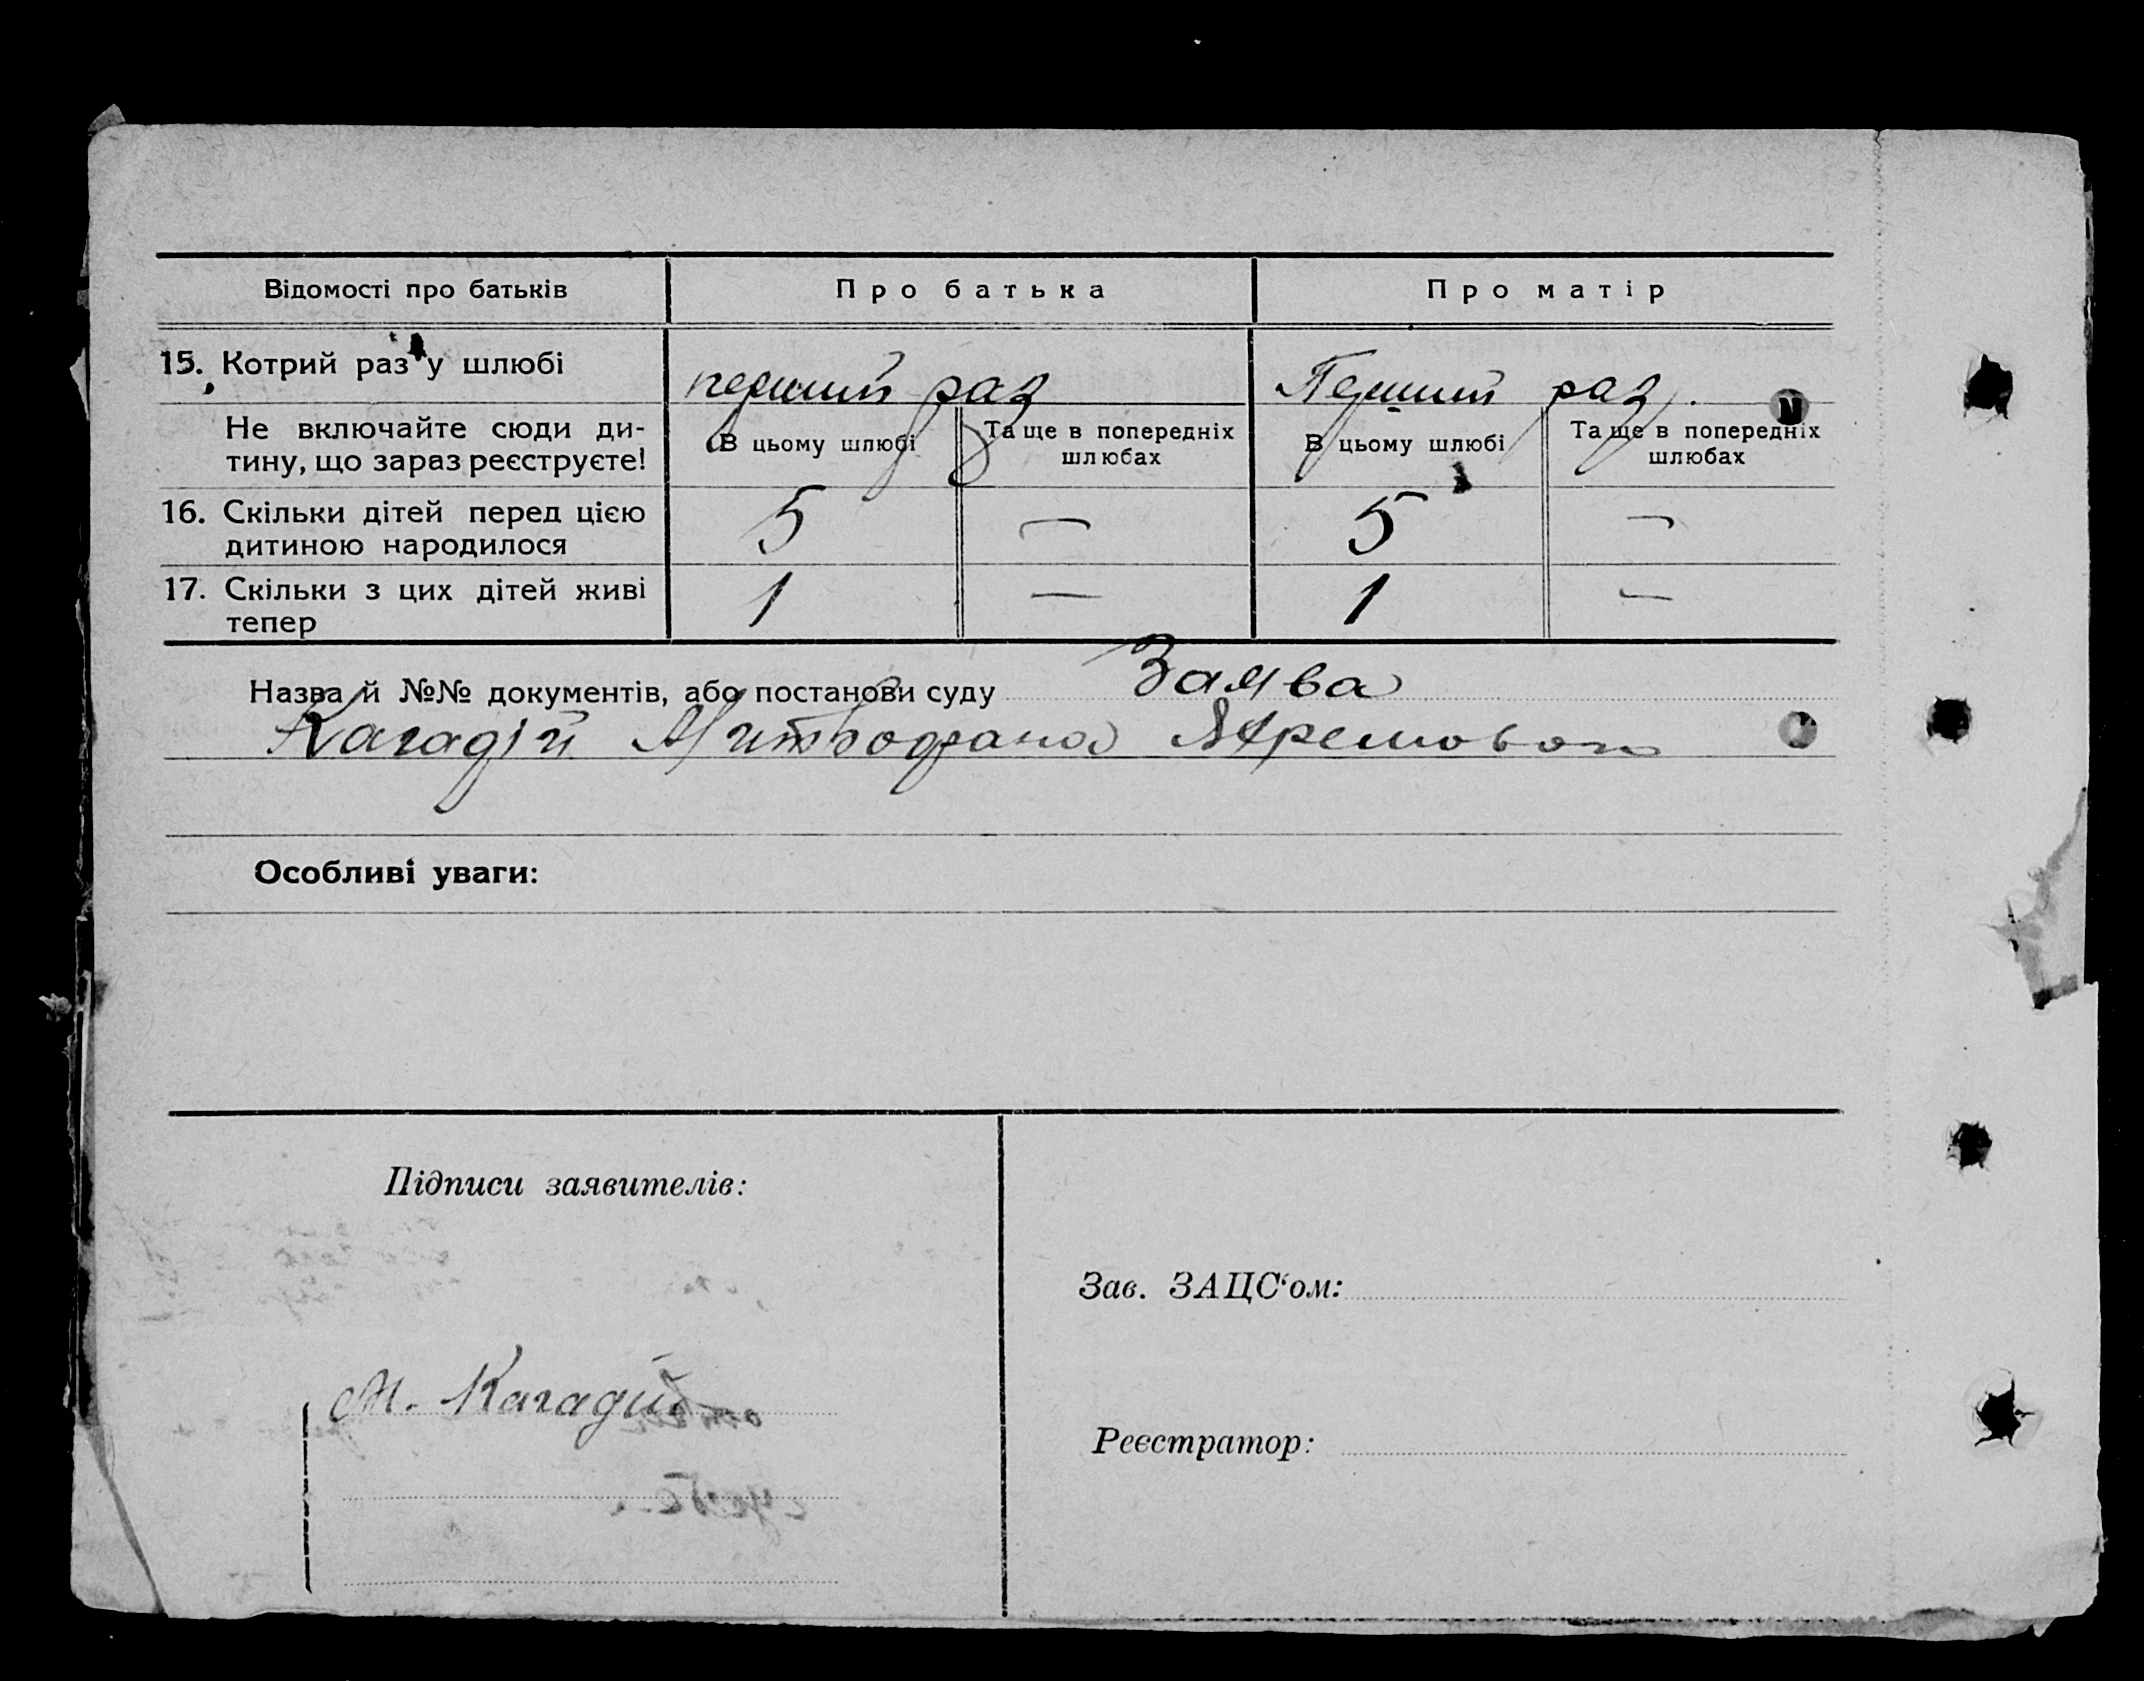 Відомості про батьків
Про батька
Про матір
15. Котрий раз у шлюбі
перший раз
Перший раз.
Не включайте сюди ди-
тину, що зараз реєструєте!
В цьому шлюбі
Та ще в попередніх
шлюбах
В цьому шлюбі
Та ще в попередніх
шлюбах
16. Скільки дітей перед цією
дитиною народилося
5
—
5
—
17. Скільки з цих дітей живі
тепер
1
—
1
—
Назва й №№ документів, або постанови суду Заява
Кагадій
Особливі уваги:
Підписи заявителів:
Зав. ЗАЦС‘ом:
М. Кагадій
Реєстратор: